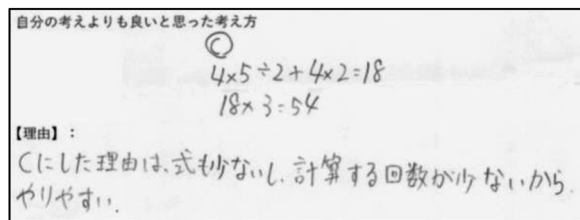 自分の考えよりも良いと思った考え方
Ⓒ
4×5÷2+4×2=18
18×3=54
【理由】:
Cにした理由は、式も少ないし、計算する回数が少ないから
やりやすい.